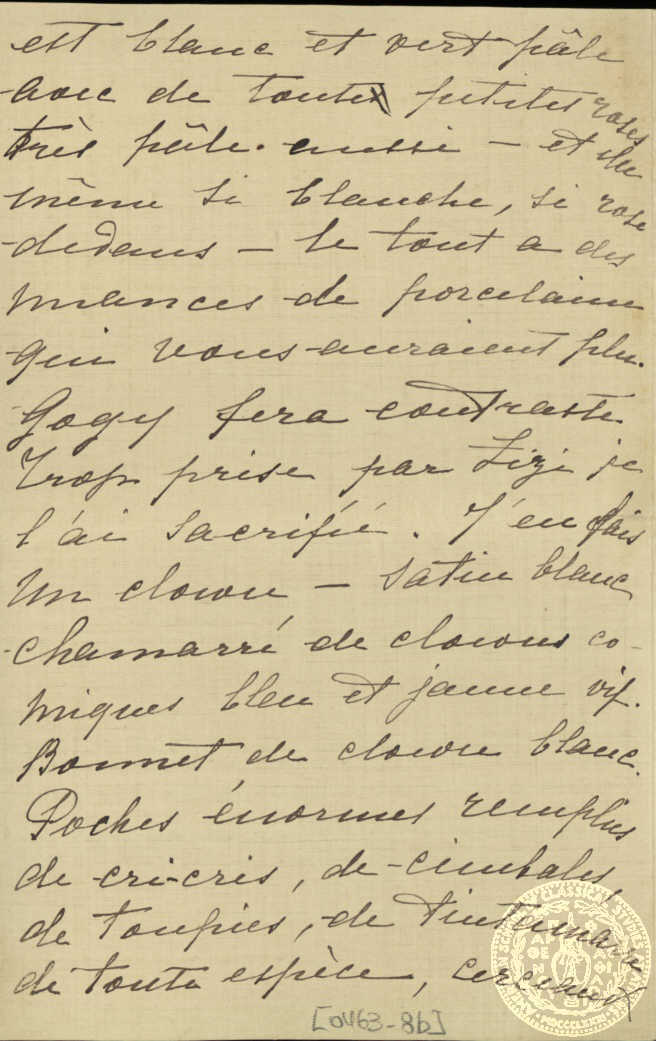 est blanc et vert pâle
avec de toutes petites roses
très pâle aussi — et elle
même si blanche, si rose
dedans — le tout a des
nuances de porcelaine
qui vous auraient plu.
Gogy fera contraste
Trop prise par Zizi je
l'ai sacrifié. J'en fais
un clown — satin blanc
chamarré de clowns co-
miques bleu et jaune vif.
Bonnet de clown blanc.
Poches énormes remplies
de cri-cris, de cimbales,
de toupies, de tintamarre
de toute espèce,
[0463-8b]